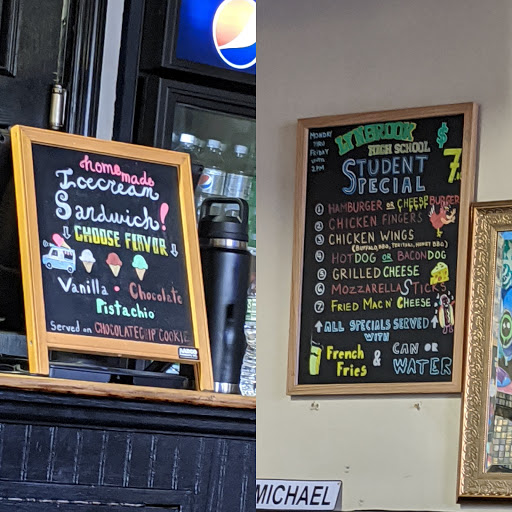 homemade
Icecream
Sandwich!
CHOOSE FLAVOR
Vanilla • Chocolate
Pistachio
Served on CHOCOLATE CHIP COOKIE
MONDAY
THRU
FRIDAY
2PM
LYNBROOK
HIGH SCHOOL
STUDENT
SPECIAL
$7
1 HAMBURGER OR CHEESEBURGER
2 CHICKEN FINGERS
3 CHICKEN WINGS
(BUFFALO, BBQ, TERIYAKI, HONEY BBQ)
4 HOTDOG OR BACONDOG
5 GRILLED CHEESE
6 MOZZARELLA STICKS
7 FRIED MAC N' CHEESE
ALL SPECIALS SERVED
WITH
French Fries & CAN OR WATER
MICHAEL